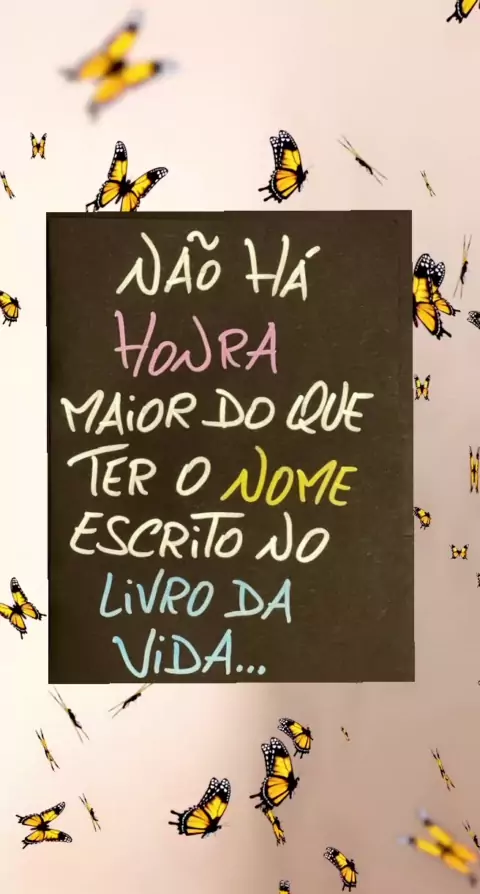 NÃO HÁ
HONRA
MAIOR DO QUE
TER O NOME
ESCRITO NO
LIVRO DA
VIDA...